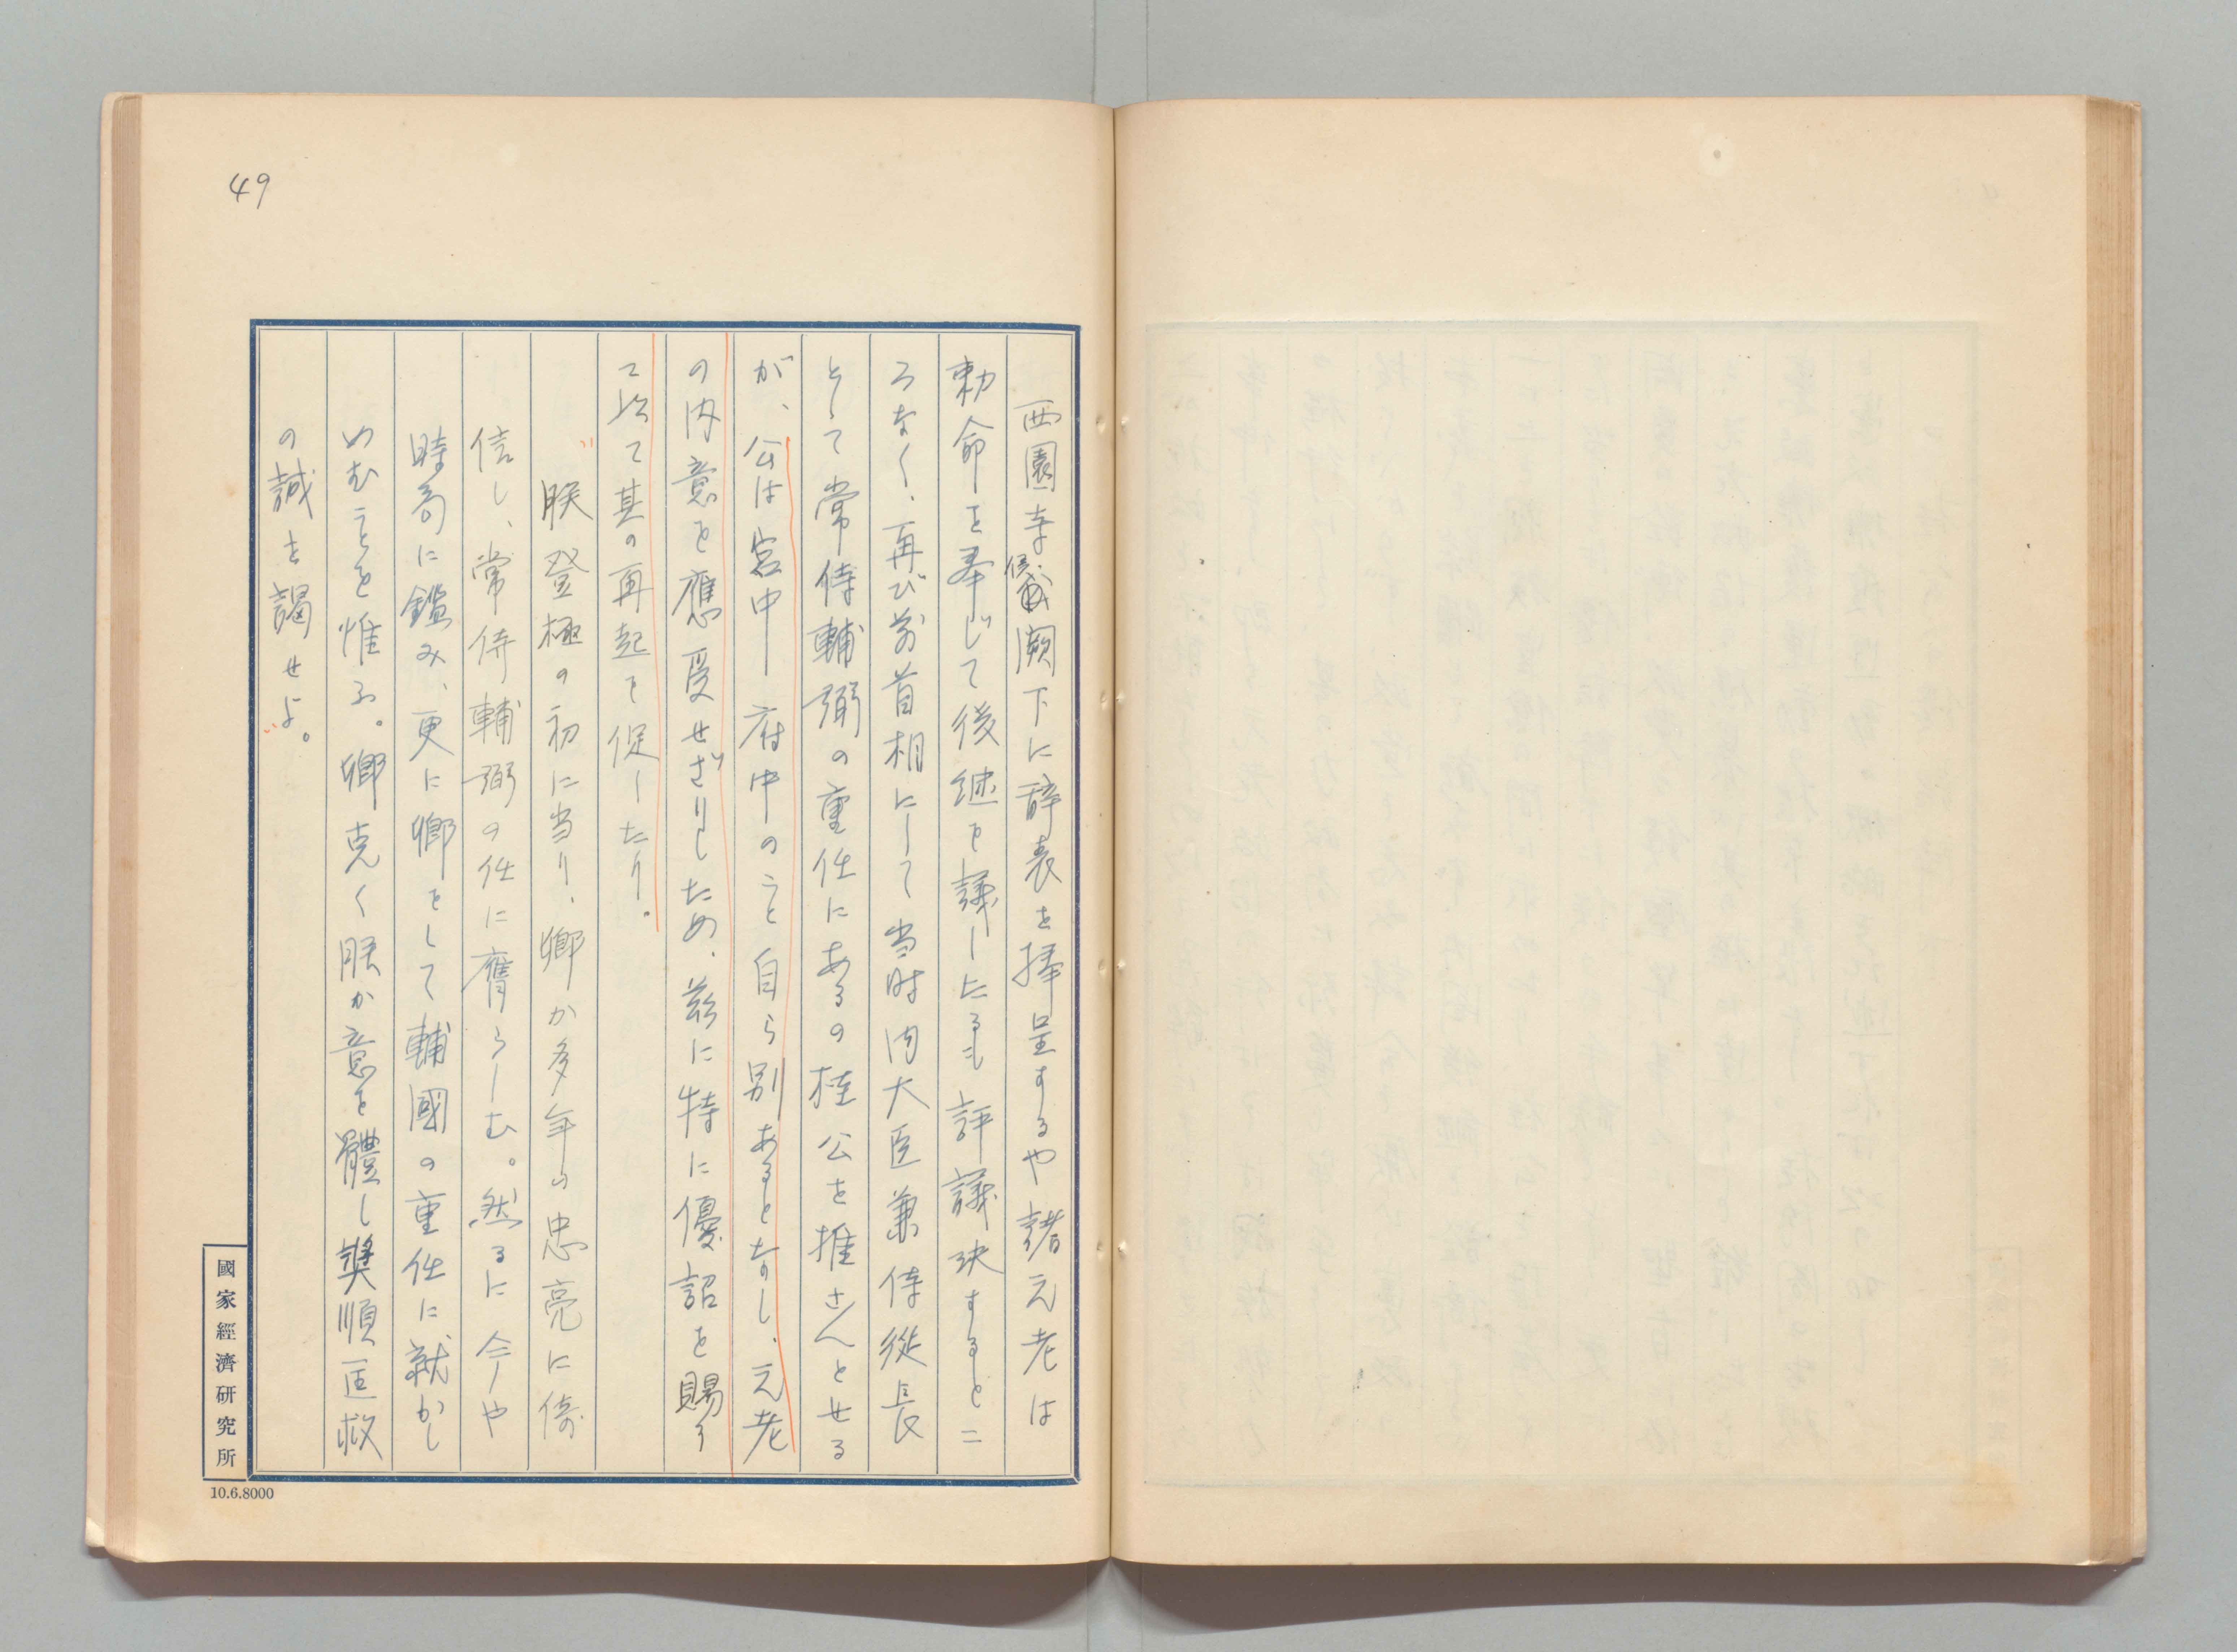 49
西園寺侯闕下に辞表を捧呈するや諸元老は
勅命を奉じて後継を議したるも評議決するとこ
ろなく、再び前首相にして当時内大臣兼侍從長
として常侍輔弼の重任にあるの桂公を推さんとせる
が、公は宮中府中のこと自ら別あるとなし、元老
の内意を應受せざりしため、茲に特に優詔を賜う
て其の再起を促したり。
〃朕登極の初に当り、卿か多年の忠亮に倚
信し、常侍輔弼の任に膺らしむ。然るに今や
時局に鑑み、更に卿をして輔國の重任に就かし
めむことを惟ふ。卿克く朕か意を體し奬順匡救
の誠を謁せよ。〃
國家經濟研究所
10.6.8000